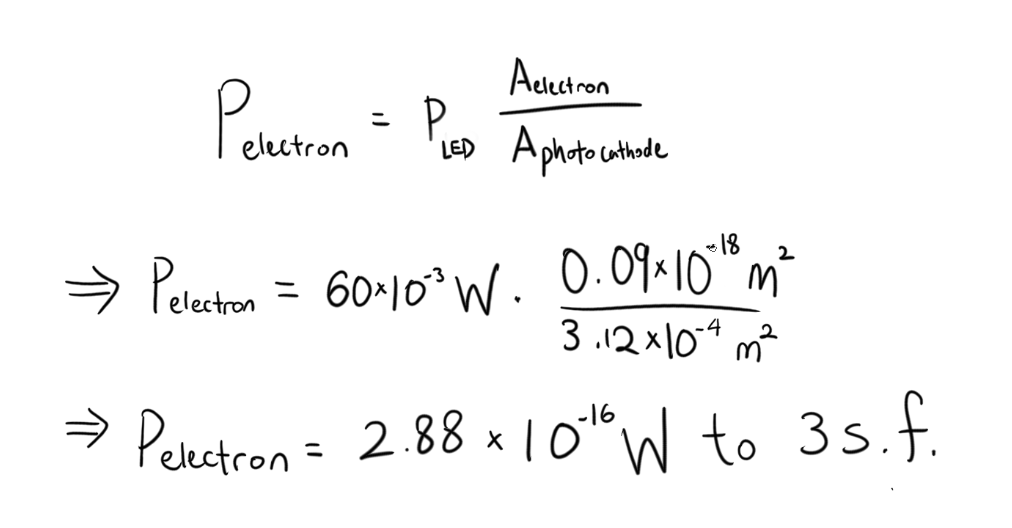 P_electron = P_LED A_electron / A_photocathode
⇒ P_electron = 60×10⁻³ W · 0.09×10⁻¹⁸ m² / 3.12×10⁻⁴ m²
⇒ P_electron = 2.88 × 10⁻¹⁶ W to 3 s.f.